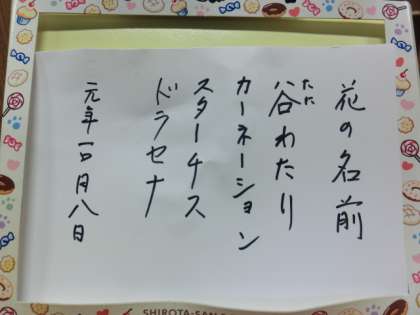 花の名前
たに
谷わたり
カーネーション
スターチス
ドラセナ
元年一〇月八日
SHIROTA-SAN